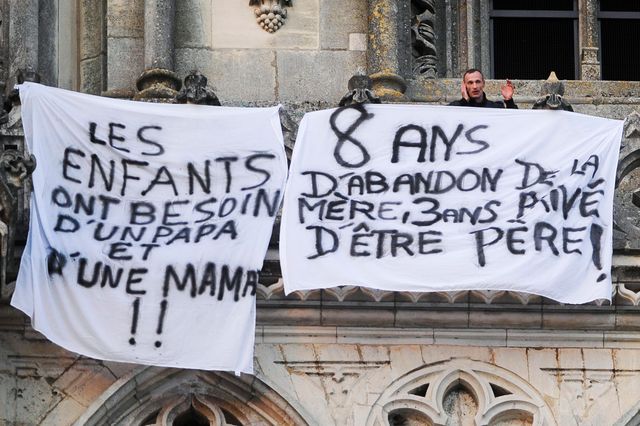 LES
ENFANTS
ONT BESOIN
D'UN PAPA
ET
D'UNE MAMAN
!!
8 ANS
D'ABANDON DE LA
MÈRE, 3 ANS PRIVÉ
D'ÊTRE PÈRE!